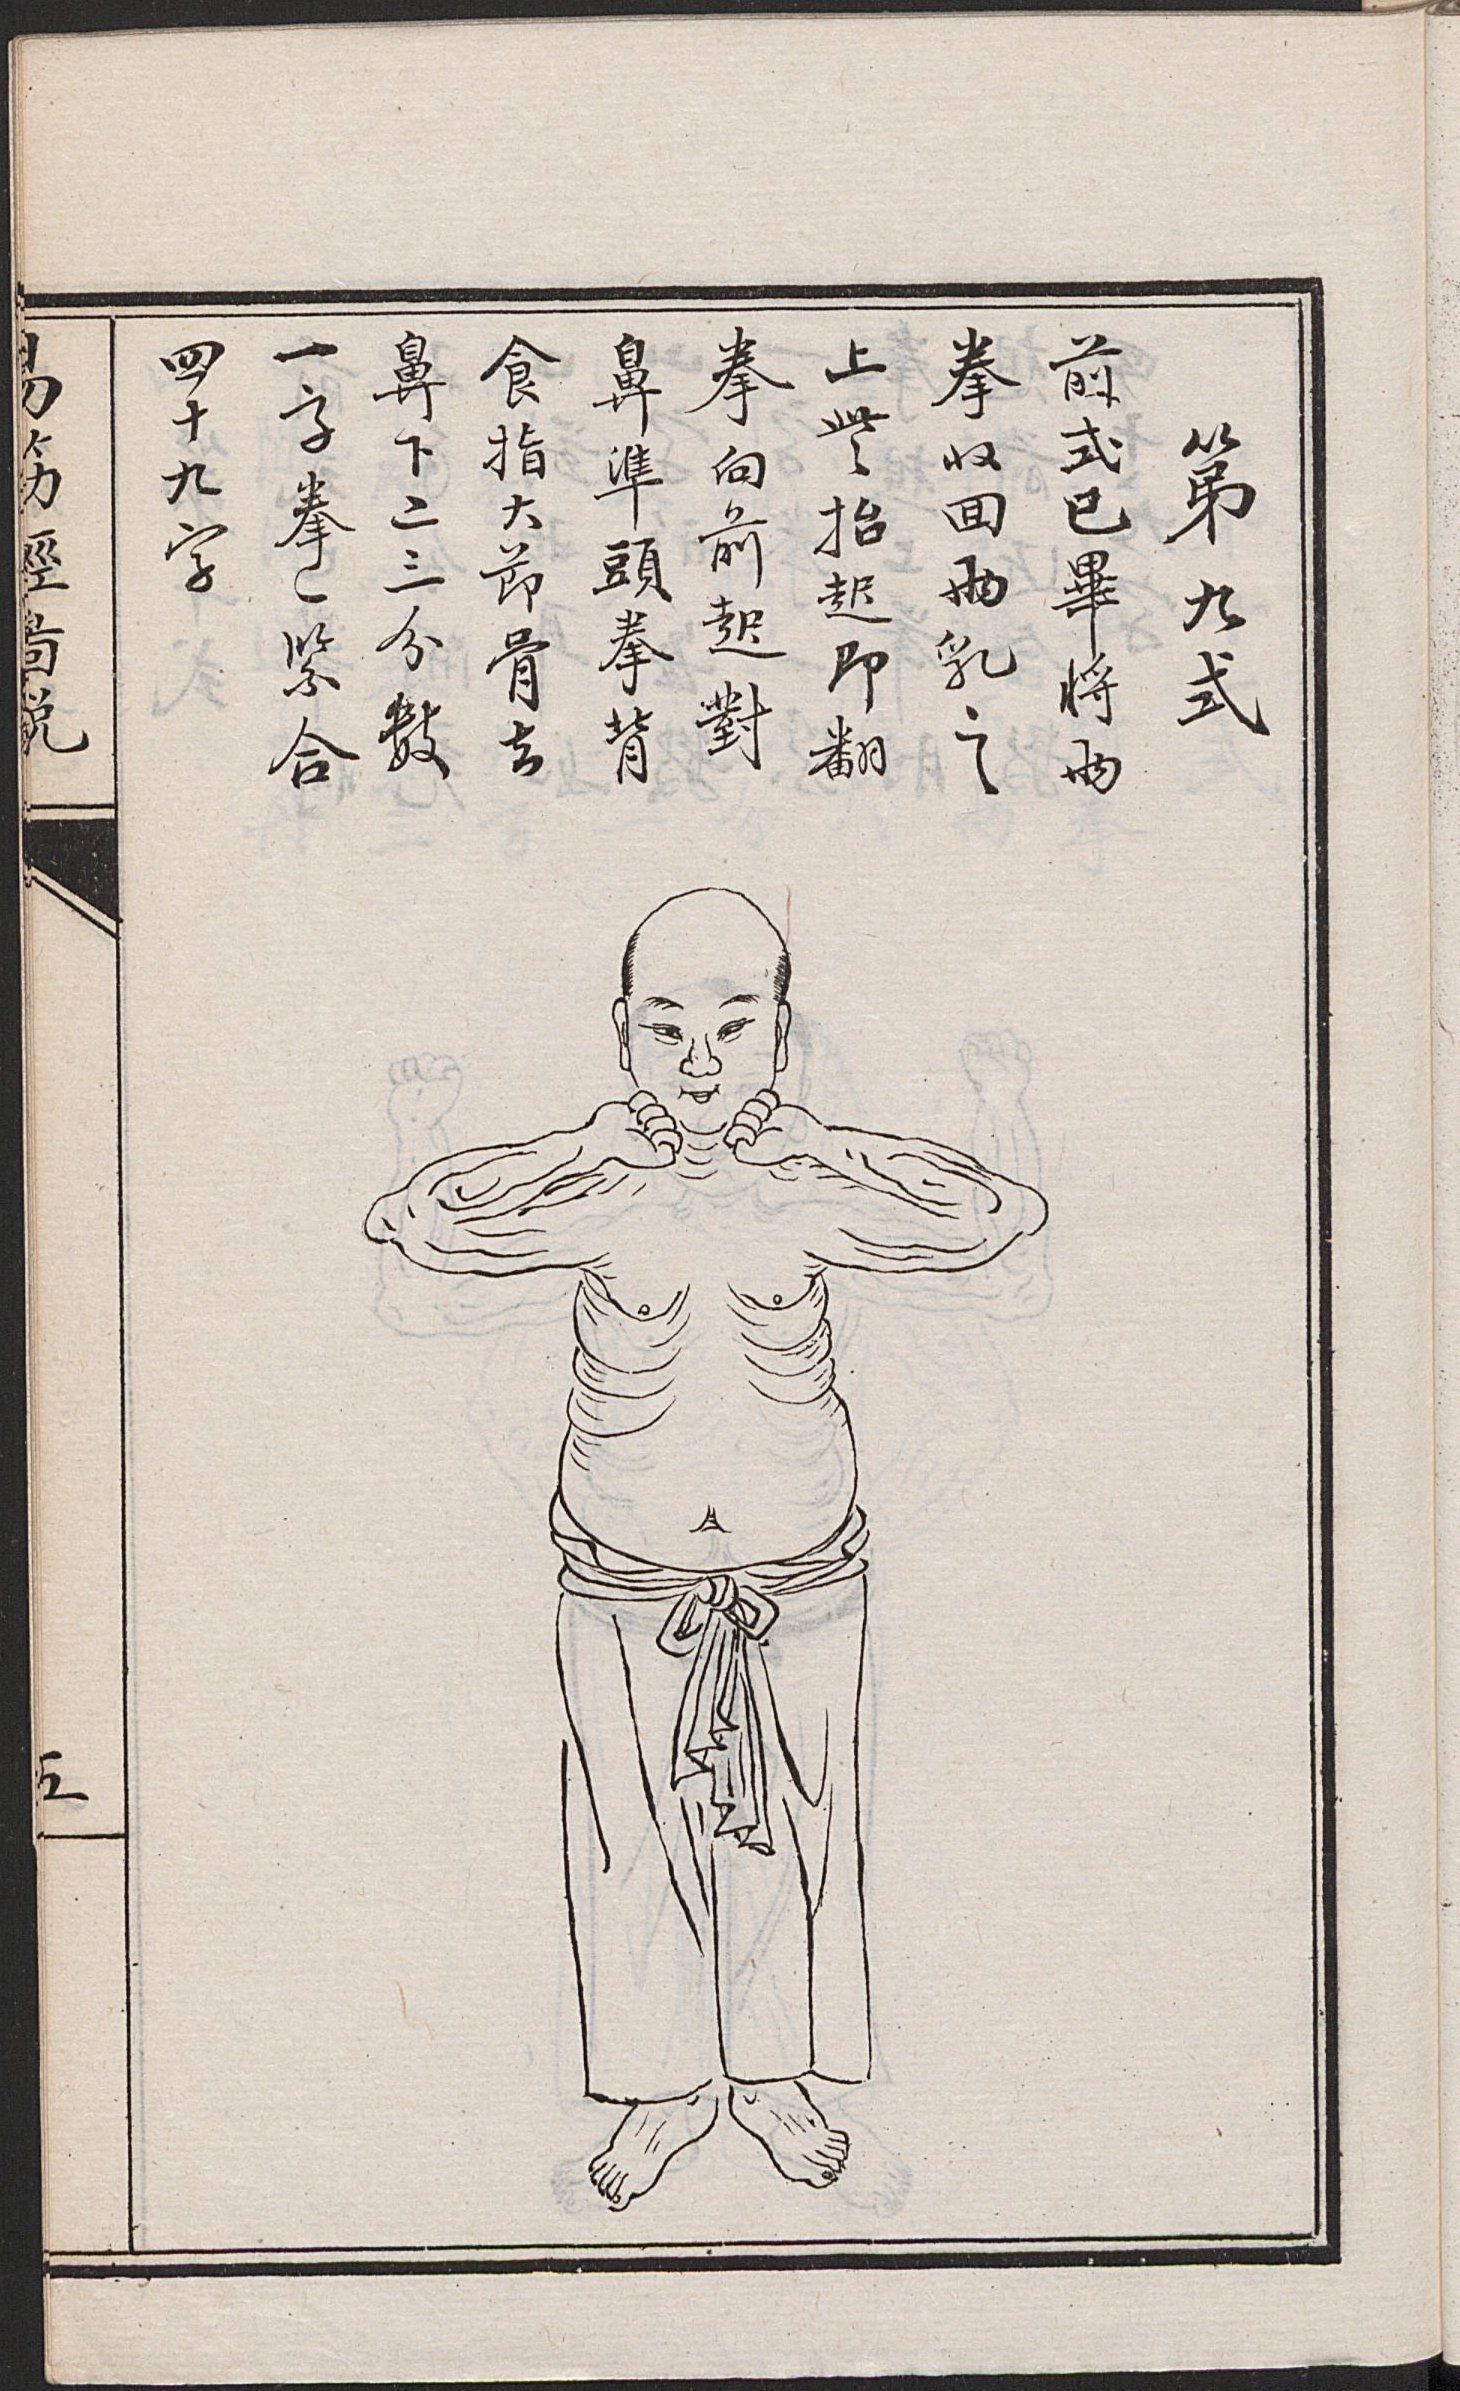 第九式
前式已畢將兩
拳收回兩乳之
上些〻抬起即翻
拳向前起對
鼻準頭拳背
食指大節骨去
鼻下二三分數
一字拳〻緊合
四十九字
易筋經啚說
五